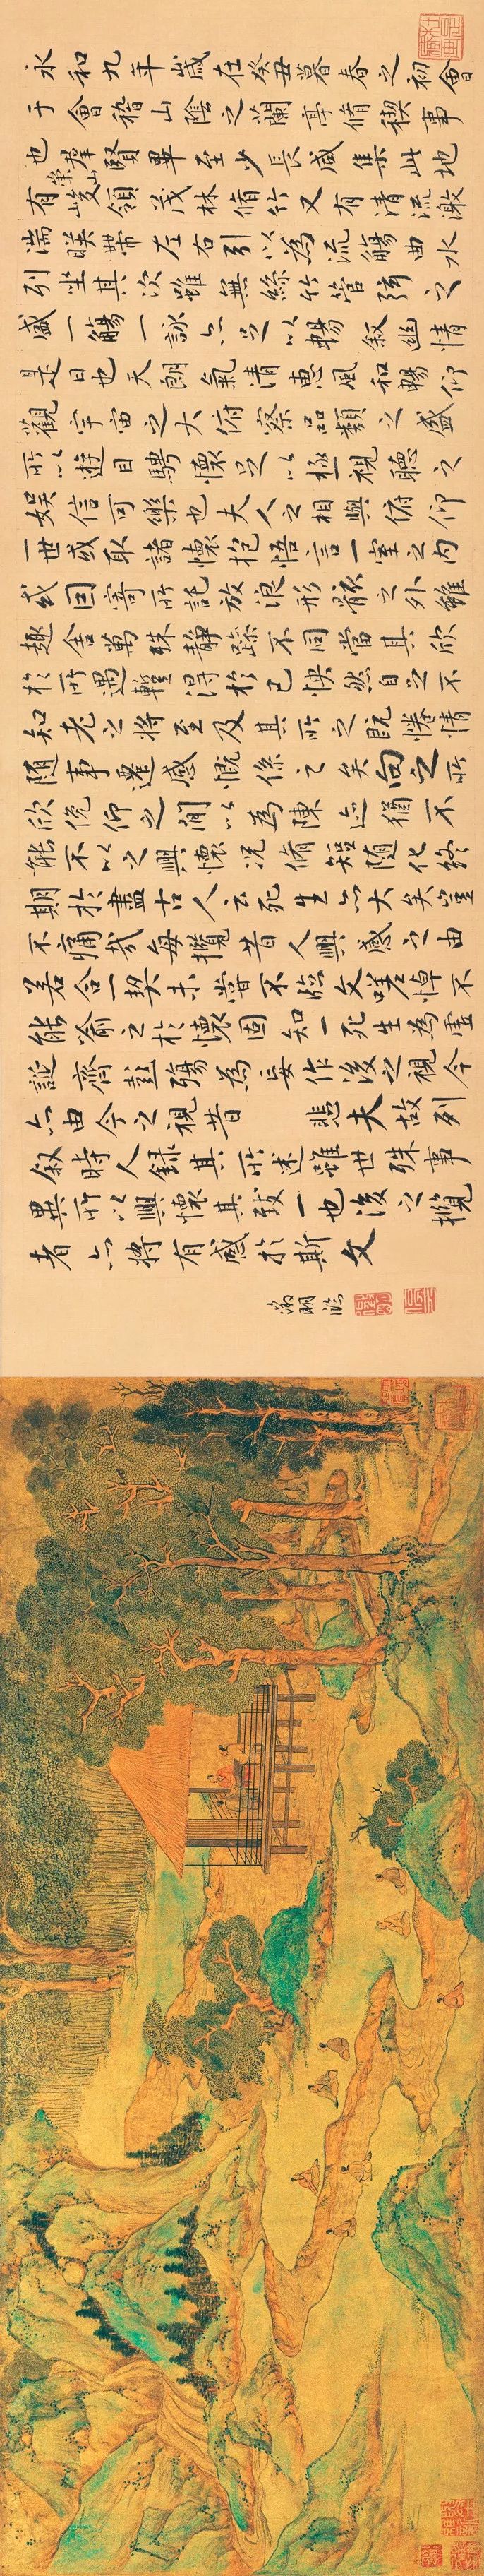 永和九年歲在癸丑暮春之初會
于會稽山陰之蘭亭脩稧事
也群賢畢至少長咸集此地
有崇山峻領茂林脩竹又有清流激
湍暎帶左右引以為流觴曲水
列坐其次雖無絲竹管弦之
盛一觴一詠亦足以暢叙幽情
是日也天朗氣清惠風和暢仰
觀宇宙之大俯察品類之盛
所以遊目騁懷足以極視聽之
娛信可樂也夫人之相與俯仰
一世或取諸懷抱悟言一室之內
或因寄所託放浪形骸之外雖
趣舍萬殊靜躁不同當其欣
於所遇蹔得於己怏然自足不
知老之將至及其所之既惓情
隨事遷感慨係之矣向之所
欣俛仰之間以為陳迹猶不
能不以之興懷況脩短隨化終
期於盡古人云死生亦大矣豈
不痛哉每攬昔人興感之由
若合一契未嘗不臨文嗟悼不
能喻之於懷固知一死生為虛
誕齊彭殤為妄作後之視今
亦由今之視昔悲夫故列
叙時人錄其所述雖世殊事
異所以興懷其致一也後之攬
者亦將有感於斯文
徵明臨